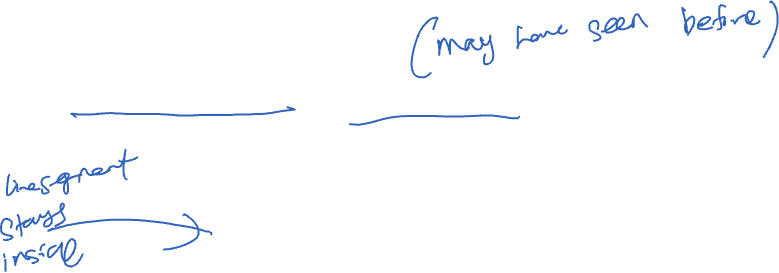 (may have seen before)
line segment
stays
inside